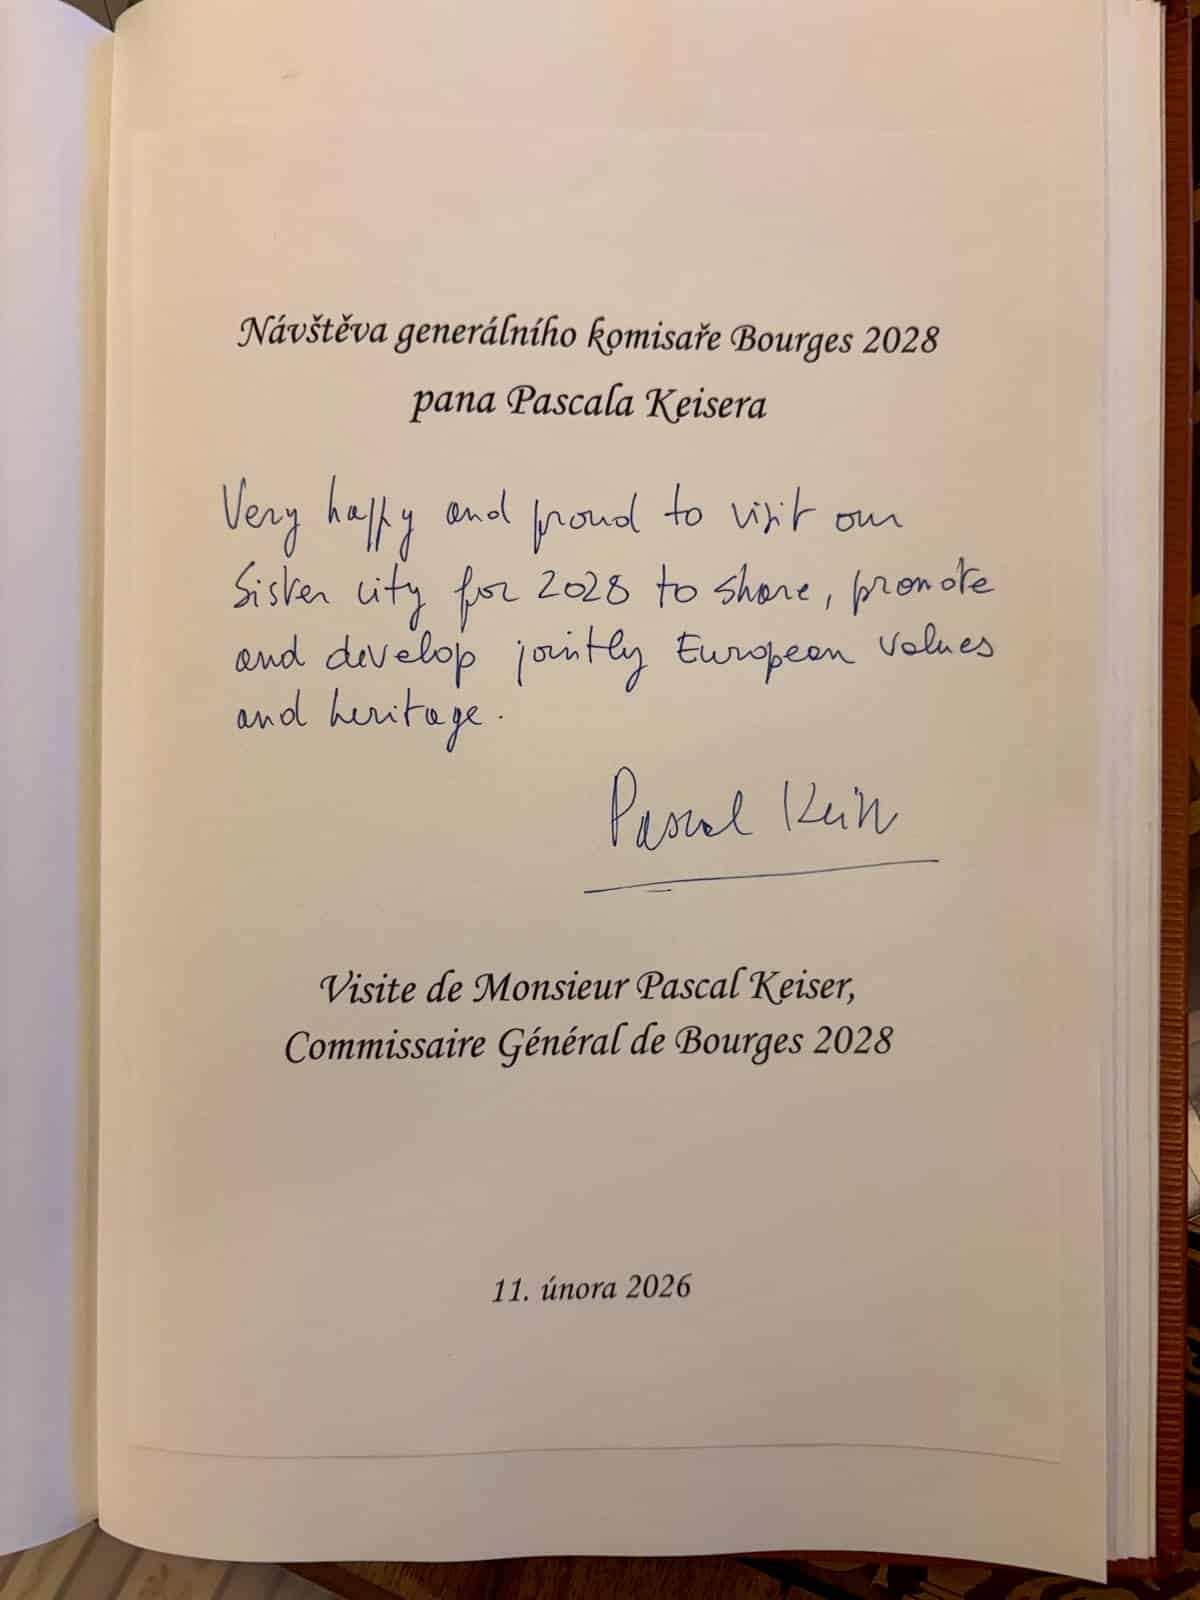 Návštěva generálního komisaře Bourges 2028
pana Pascala Keisera
Very happy and proud to visit our
Sister city for 2028 to share, promote
and develop jointly European values
and heritage.
Pascal Keiser
Visite de Monsieur Pascal Keiser,
Commissaire Général de Bourges 2028
11. února 2026